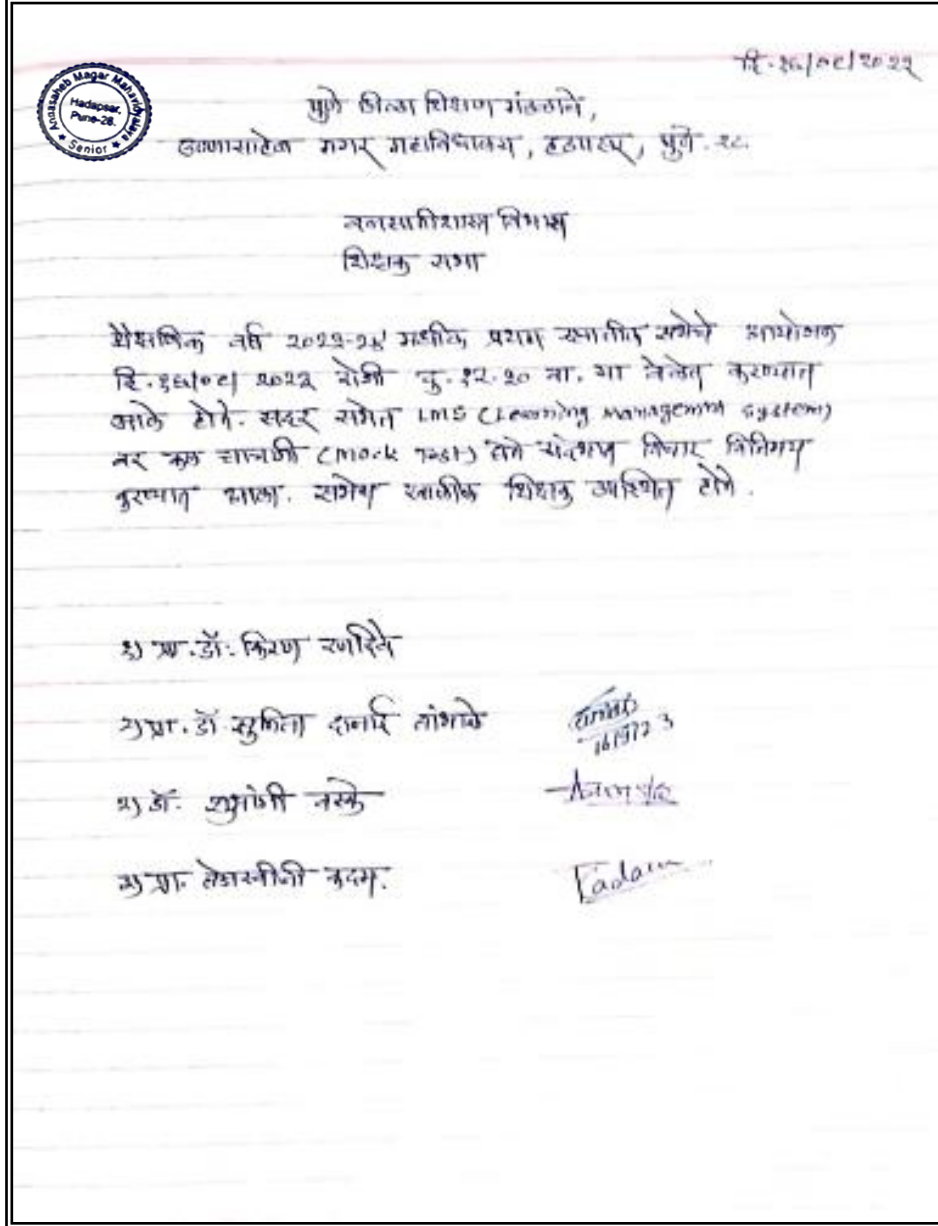 दि. १६/०८/२०२३
Annasaheb Magar Mahavidyalaya
Hadapsar,
Pune-28.
★ Senior ★
पुणे जिल्हा शिक्षण मंडळाचे,
अण्णासाहेब मगर महाविद्यालय, हडपसर, पुणे. २८.
वनस्पतीशास्त्र विभाग
शिक्षक सभा
शैक्षणिक वर्ष २०२३-२४ मधील प्रथम सभेचे आयोजन
दि. १६/०८/२०२३ रोजी दु. १२.२० वा. या वेळेत करण्यात
आले होते. सदर सभेत LMS (Learning Management System)
वर चाचणी (Mock Test) घेणे संदर्भात विचार विनिमय
करण्यात आला. सभेस खालील शिक्षक उपस्थित होते.
१) प्रा. डॉ. किरण रणदिवे
२) प्रा. डॉ. तांभाळे
३) डॉ. शुभांगी
४) प्रा. तेजस्वीनी कदम.
Kadam